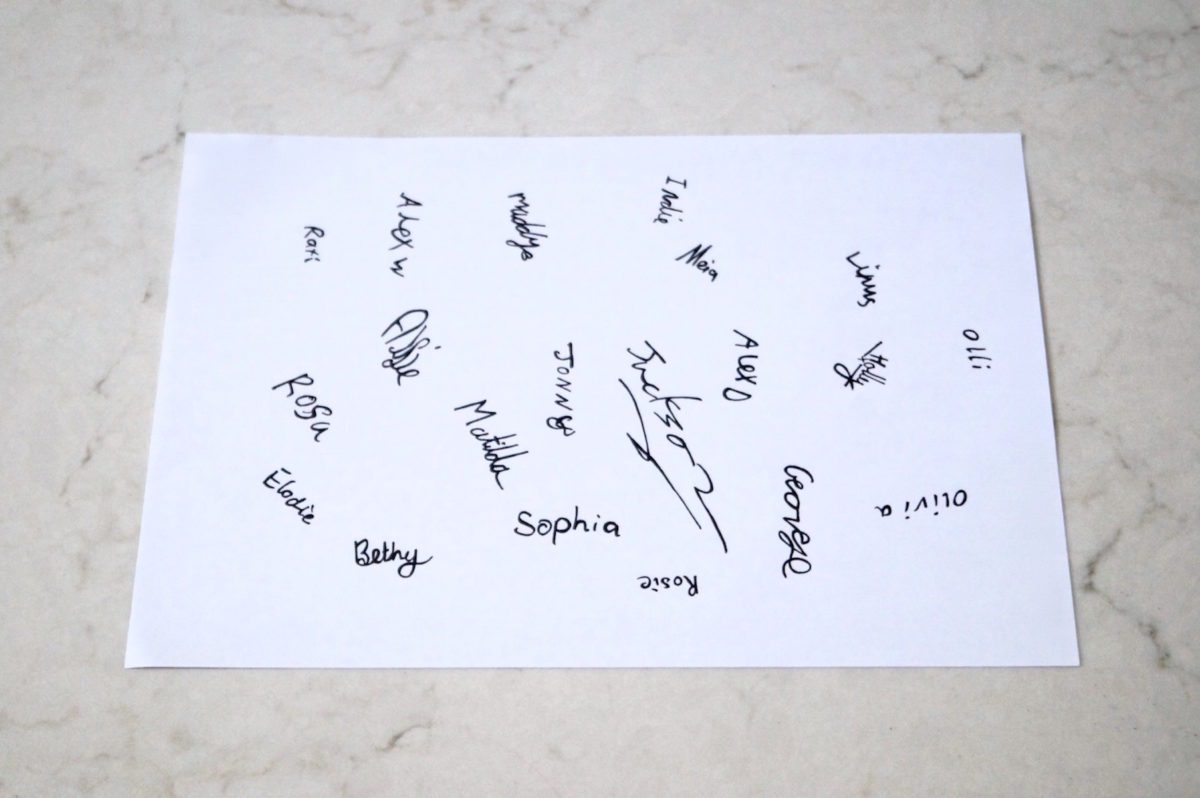 Indie
Maddye
Alex W
Rafi
Meia
Linus
Olli
Alfije
Jonny
Jackson
Alex D
Vitaly
Rosa
Matilda
George
Olivia
Elodie
Sophia
Bethy
Rosie